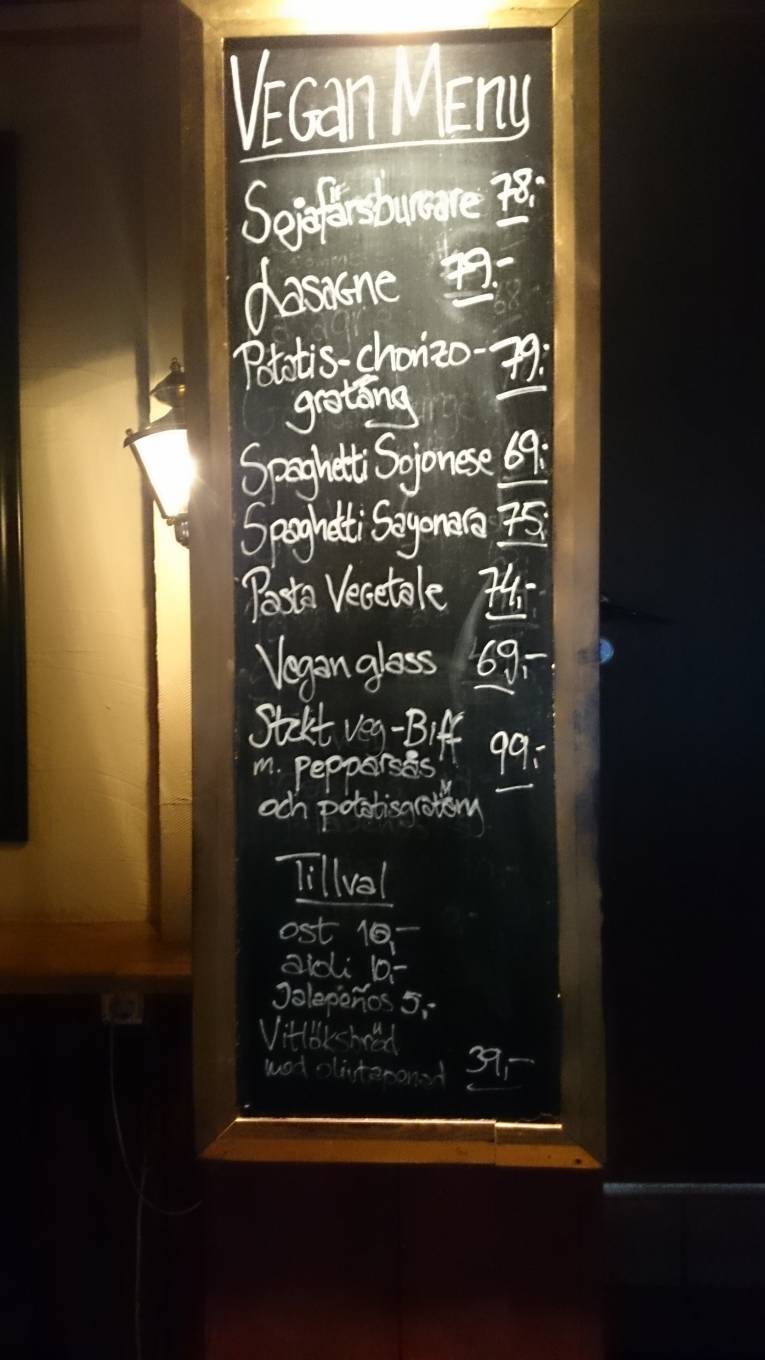 VEGAN MENY
Sojafärsburgare 78:-
Lasagne 79:-
Potatis-chorizo- 79:-
gratäng
Spaghetti Sojonese 69:-
Spaghetti Sayonara 75:-
Pasta Vegetale 74,-
Vegan glass 69,-
Stekt veg-Biff
m. pepparsås 99:-
och potatisgratäng
Tillval
ost 10,-
aioli 10,-
Jalepeños 5,-
Vitlöksbröd
med olivtapenad 39,-